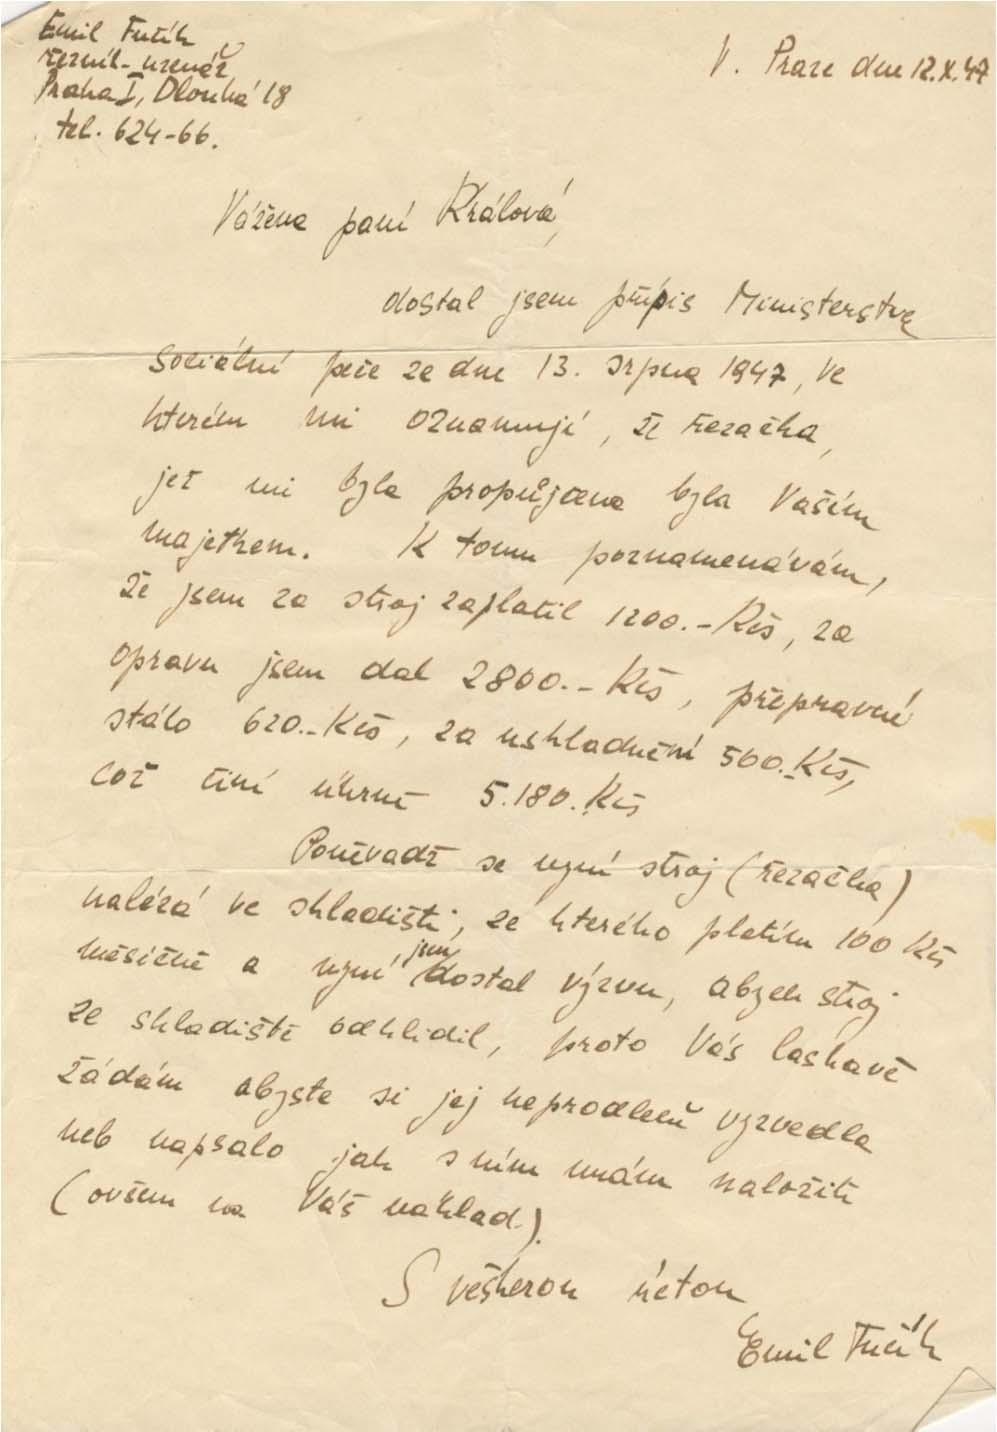 Emil Fučík
řezník-uzenář
Praha I, Dlouhá 18
tel. 624-66.
V. Praze dne 12.X.47
Vážena paní Králová,
dostal jsem přípis Ministerstva
Sociální péče ze dne 13. srpna 1947, ve
kterém mi oznamují, že řezačka,
jež mi byla propůjčena byla Vaším
majetkem. K tomu poznamenávám,
že jsem za stroj zaplatil 1200.-Kčs, za
opravu jsem dal 2860.-Kčs, přepravné
stálo 620.-Kčs, za uskladnění 500.-Kčs,
což činí úhrně 5.180.Kčs
Poněvadž se nyní stroj (řezačka)
nalézá ve skladišti, ze kterého platím 100 Kčs
měsíčně a nyní jsem dostal výzvu, abych stroj
ze skladiště odklidil, proto Vás laskavě
žádám abyste si jej neprodleně vyzvedla
neb napsalo jak s ním mám naložiti
(ovšem na Váš náklad).
S veškerou úctou
Emil Fučík